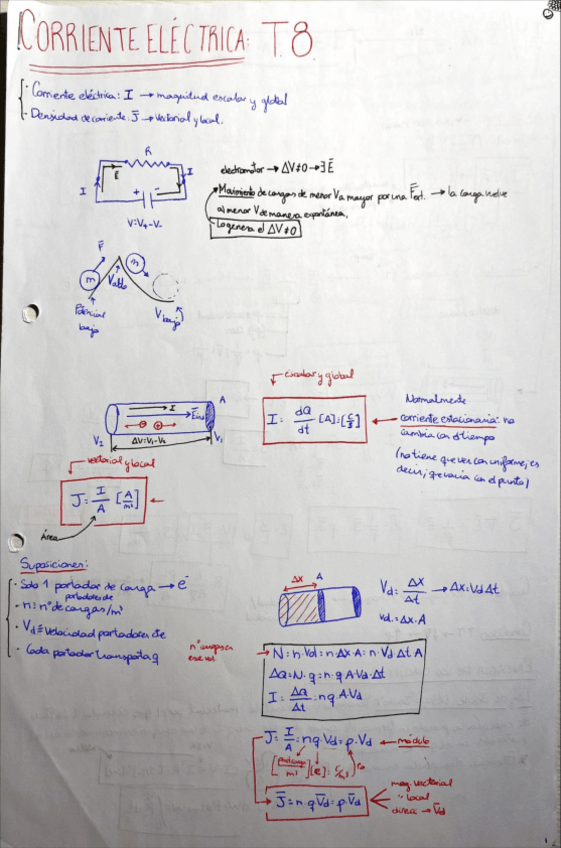 CORRIENTE ELÉCTRICA: T.8
· Corriente eléctrica: I → magnitud escalar y global
· Densidad de corriente: J̄ → Vectorial y local.
R
I
Ē
I
+ -
V=V₊-V₋
electromotor → ΔV≠0 → ∃ Ē
Movimiento de cargas de menor V a mayor por una F̄ext. → la carga vuelve
al menor V de manera espontánea.
Lo genera el ΔV≠0
F̄
m
m
V alto
Potencial
bajo
V bajo
escalar y global
I = dQ/dt [A]=[C/s]
Normalmente
corriente estacionaria: no
cambia con el tiempo
(no tiene que ver con uniforme, es
decir, que varía con el punto)
I
A
ΔV=V₁-V₂
V₂
V₁
vectorial y local
J = I/A [A/m²]
Área
Suposiciones:
· Solo 1 portador de carga → e⁻
portadores de
· n = nº de cargas/m³
· Vd ≡ velocidad portadores de
· Cada portador transporta q
Δx
A
Vd = Δx/Δt → Δx = Vd Δt
Vol = Δx·A
nº cargas en
ese vol.
N = n·Vol = n·Δx·A = n·Vd·Δt A
ΔQ = N·q = n·q A·Vd·Δt
I = ΔQ/Δt = nq A·Vd
J = I/A = nq Vd = ρ·Vd ← módulo
J̄ = n·q V̄d = ρ·V̄d
mag. vectorial
" local
direcc → V̄d